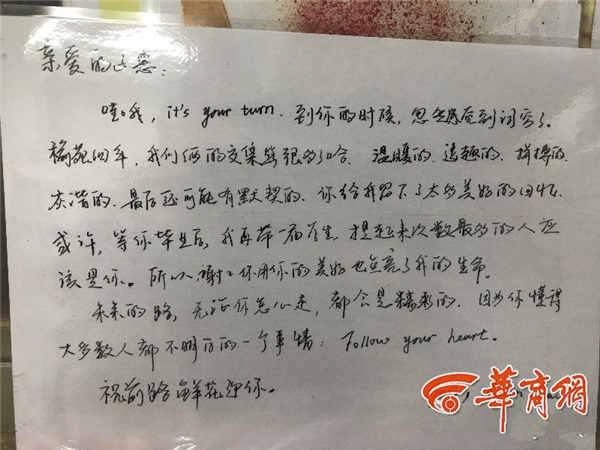 亲爱的
it's your turn. 到你的时候, 忽然感到词穷了。
四年, 我们俩的交集算很多了哈. 温暖的. 逗趣的.
诙谐的. 最后还可能有默契的. 你给我留下了太多美好的回忆.
或许, 等你毕业后, 我再带一届学生, 提起来次数最多的人应
该是你。所以谢谢你用你的美好也点亮了我的生命.
未来的路, 无论你怎么走, 都会是精彩的. 因为你懂得
大多数人都不明白的一个事情: Follow your heart.
祝前路鲜花迎你。
華商網